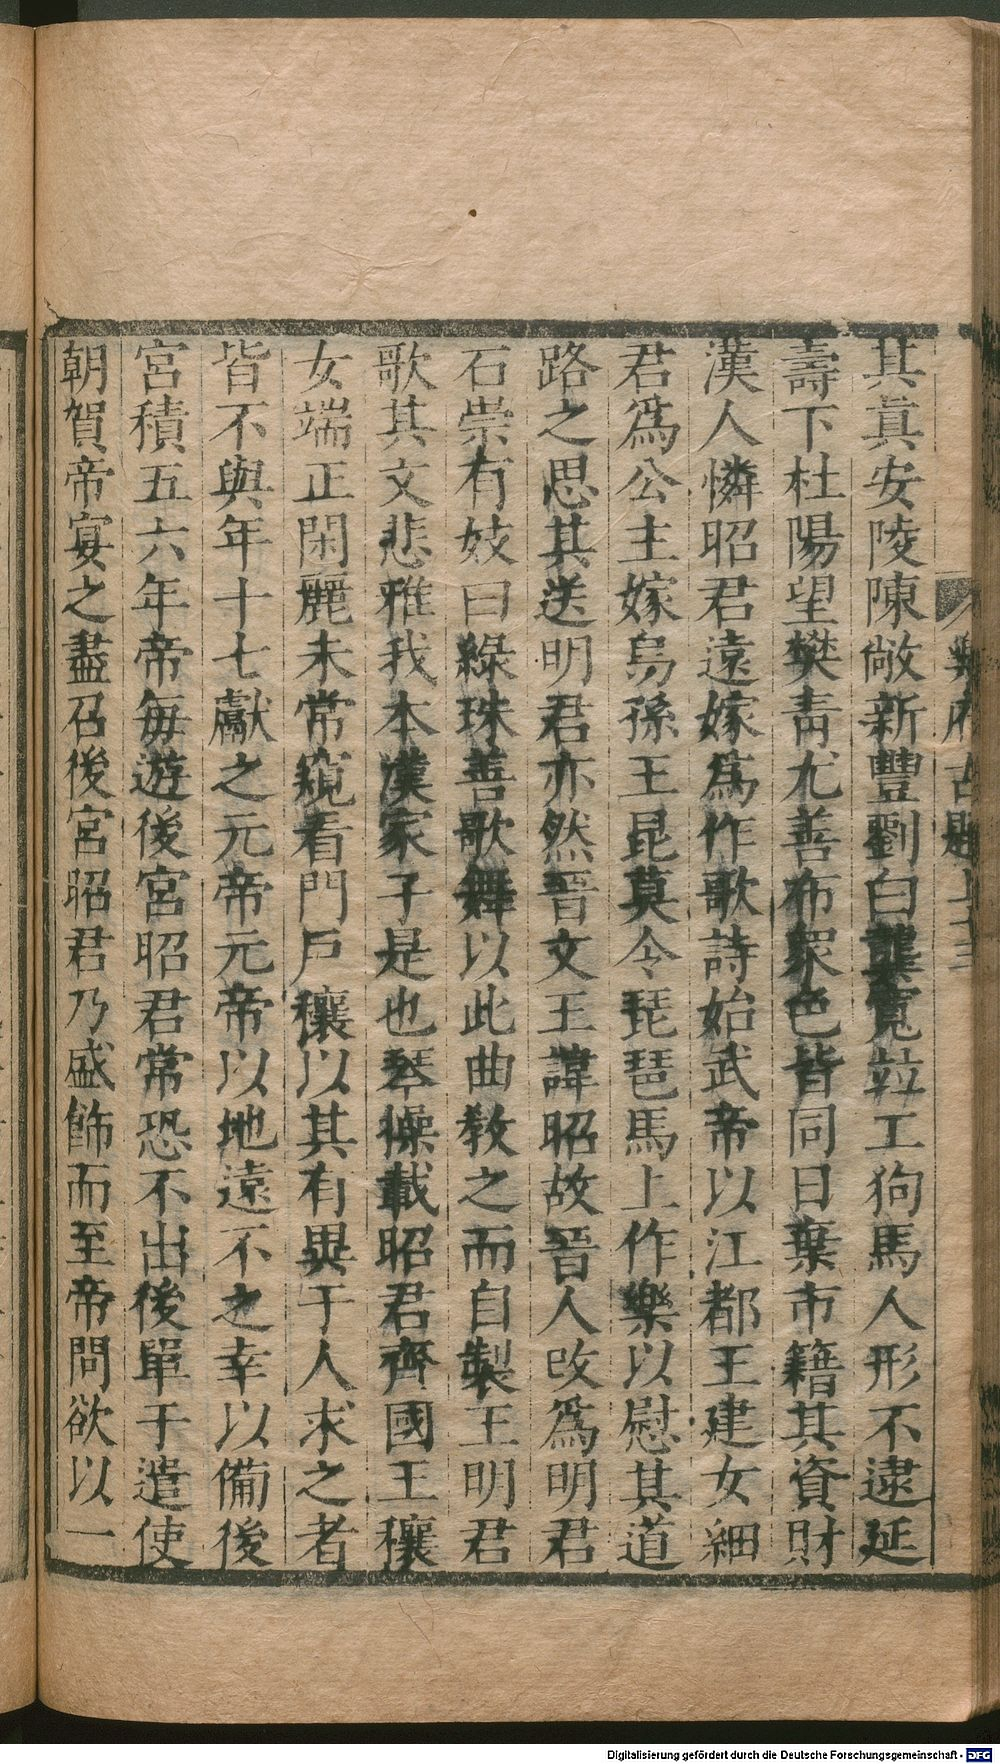 樂府古題上
其真安陵陳敞新豐劉白龔寬並工狗馬人形不逮延
壽下杜陽望樊青尤善布眾色皆同日棄市籍其資財
漢人憐昭君遠嫁為作歌詩始武帝以江都王建女細
君為公主嫁烏孫王昆莫令琵琶馬上作樂以慰其道
路之思其送明君亦然晉文王諱昭故晉人改為明君
石崇有妓曰綠珠善歌舞以此曲教之而自製王明君
歌其文悲雅我本漢家子是也琴操載昭君齊國王穰
女端正閑麗未常窺看門戶穰以其有異于人求之者
皆不與年十七獻之元帝元帝以地遠不之幸以備後
宮積五六年帝每遊後宮昭君常恐不出後單于遣使
朝賀帝宴之盡召後宮昭君乃盛飾而至帝問欲以一
Digitalisierung gefördert durch die Deutsche Forschungsgemeinschaft - DFG